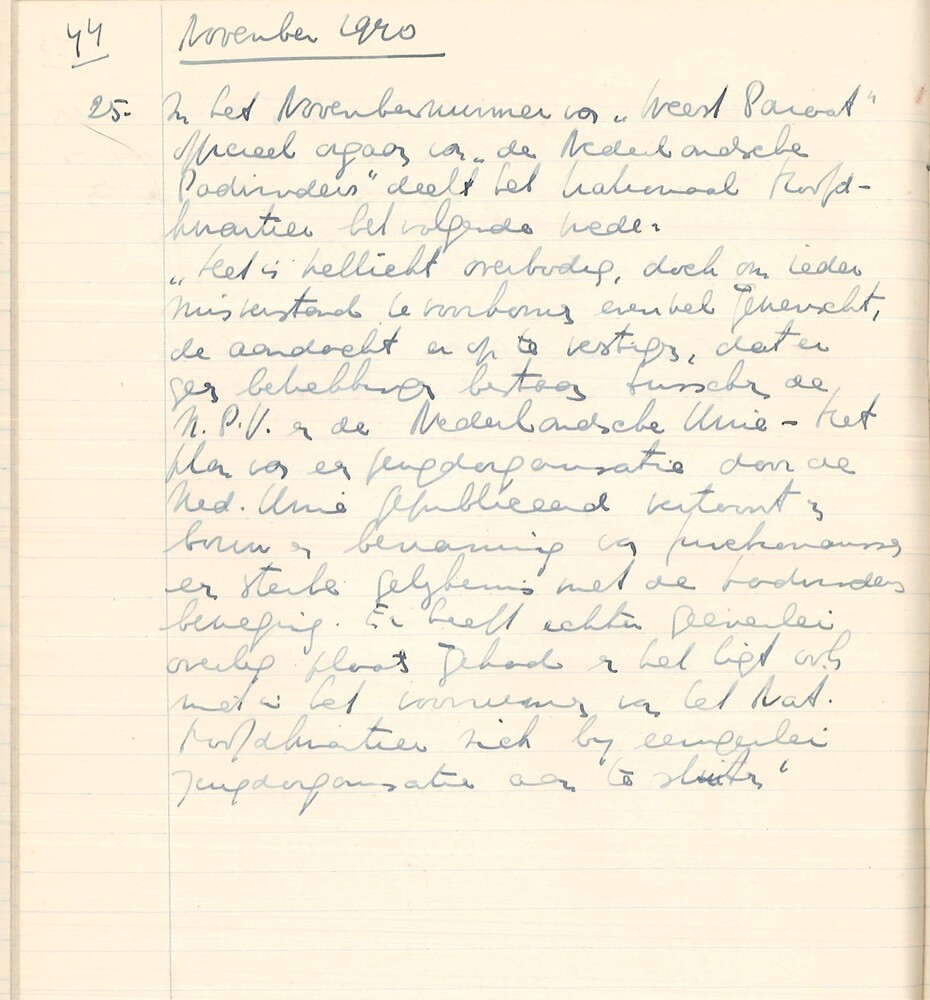 44 November 1940
25. In het Novembernummer van „Weest Paraat"
officieel orgaan van „de Nederlandsche
Padvinders" deelt het nationaal Hoofd-
kwartier het volgende mede:
„Het is wellicht overbodig, doch om ieder
misverstand te voorkomen evenwel gewenscht,
de aandacht er op te vestigen, dat er
geen betrekkingen bestaan tusschen de
N.P.V. en de Nederlandsche Unie - Het
plan van een jeugdorganisatie door de
Ned. Unie gepubliceerd vertoont in
bouw en benaming van
een sterke gelijkenis met de padvinders
beweging. Er heeft echter geenerlei
overleg plaats gehad en het ligt ook
niet in het voornemen van het Nat.
Hoofdkwartier zich bij eenigerlei
jeugdorganisatie aan te sluiten"